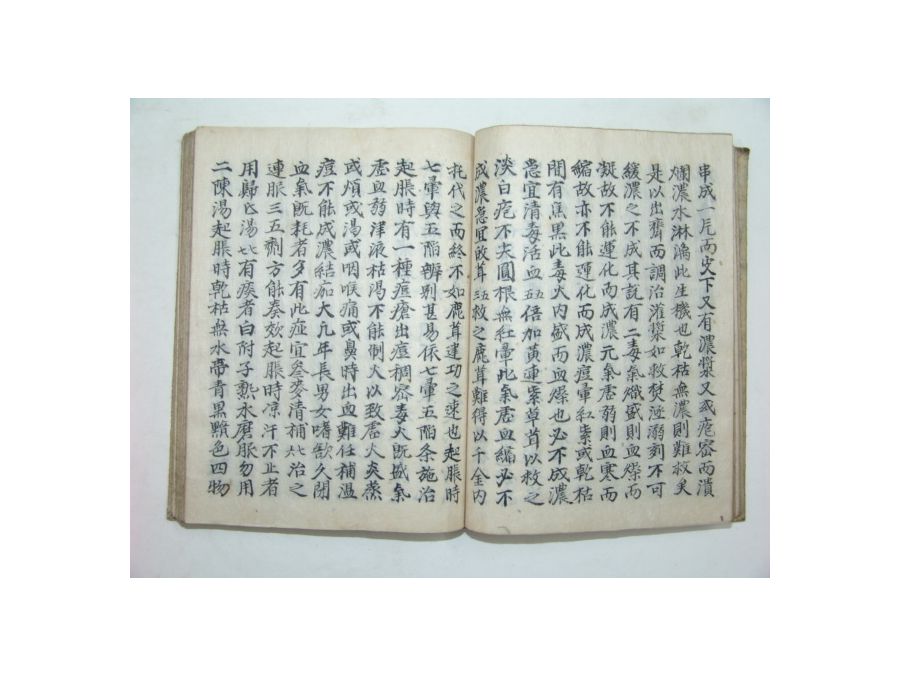 串成一片而皮下又有濃漿又或疱密而潰
爛濃水淋漓此生機也乾枯無濃則難救矣
是以出齊而調治灌漿如救焚拯溺刻不可
緩濃之不成其說有二毒氣熾盛則血燥而
凝故不能運化而成濃元氣虛弱則血寒而
縮故亦不能運化而成濃痘暈紅紫或乾枯
間有焦黑此毒火內盛而血燥也必不成濃
急宜清毒活血五五倍加黃連紫草茸以救之
淡白疱不尖圓根無紅暈此氣虛血縮必不
成濃急宜 茸五五救之鹿茸難得以千金內
托代之而終不如鹿茸建功之速也起脹時
七暈與五陷辨別甚易依七暈五陷条施治
起脹時有一種痘瘡出痘稠密毒火旣盛氣
虛血弱津液枯渴不能制火以致虛火炎蒸
或煩或渴或咽喉痛或鼻時出血難任補溫
痘不能成濃結痂大凡年長男女嗜慾久閉
血氣旣耗者多有此症宜參麥清補六六治之
連脹三五劑方能奏效起脹時凉汗不止者
用歸 湯七七有痰者白附子熱水磨服勿用
二陳湯起脹時乾枯無水帶青黑黯色四物